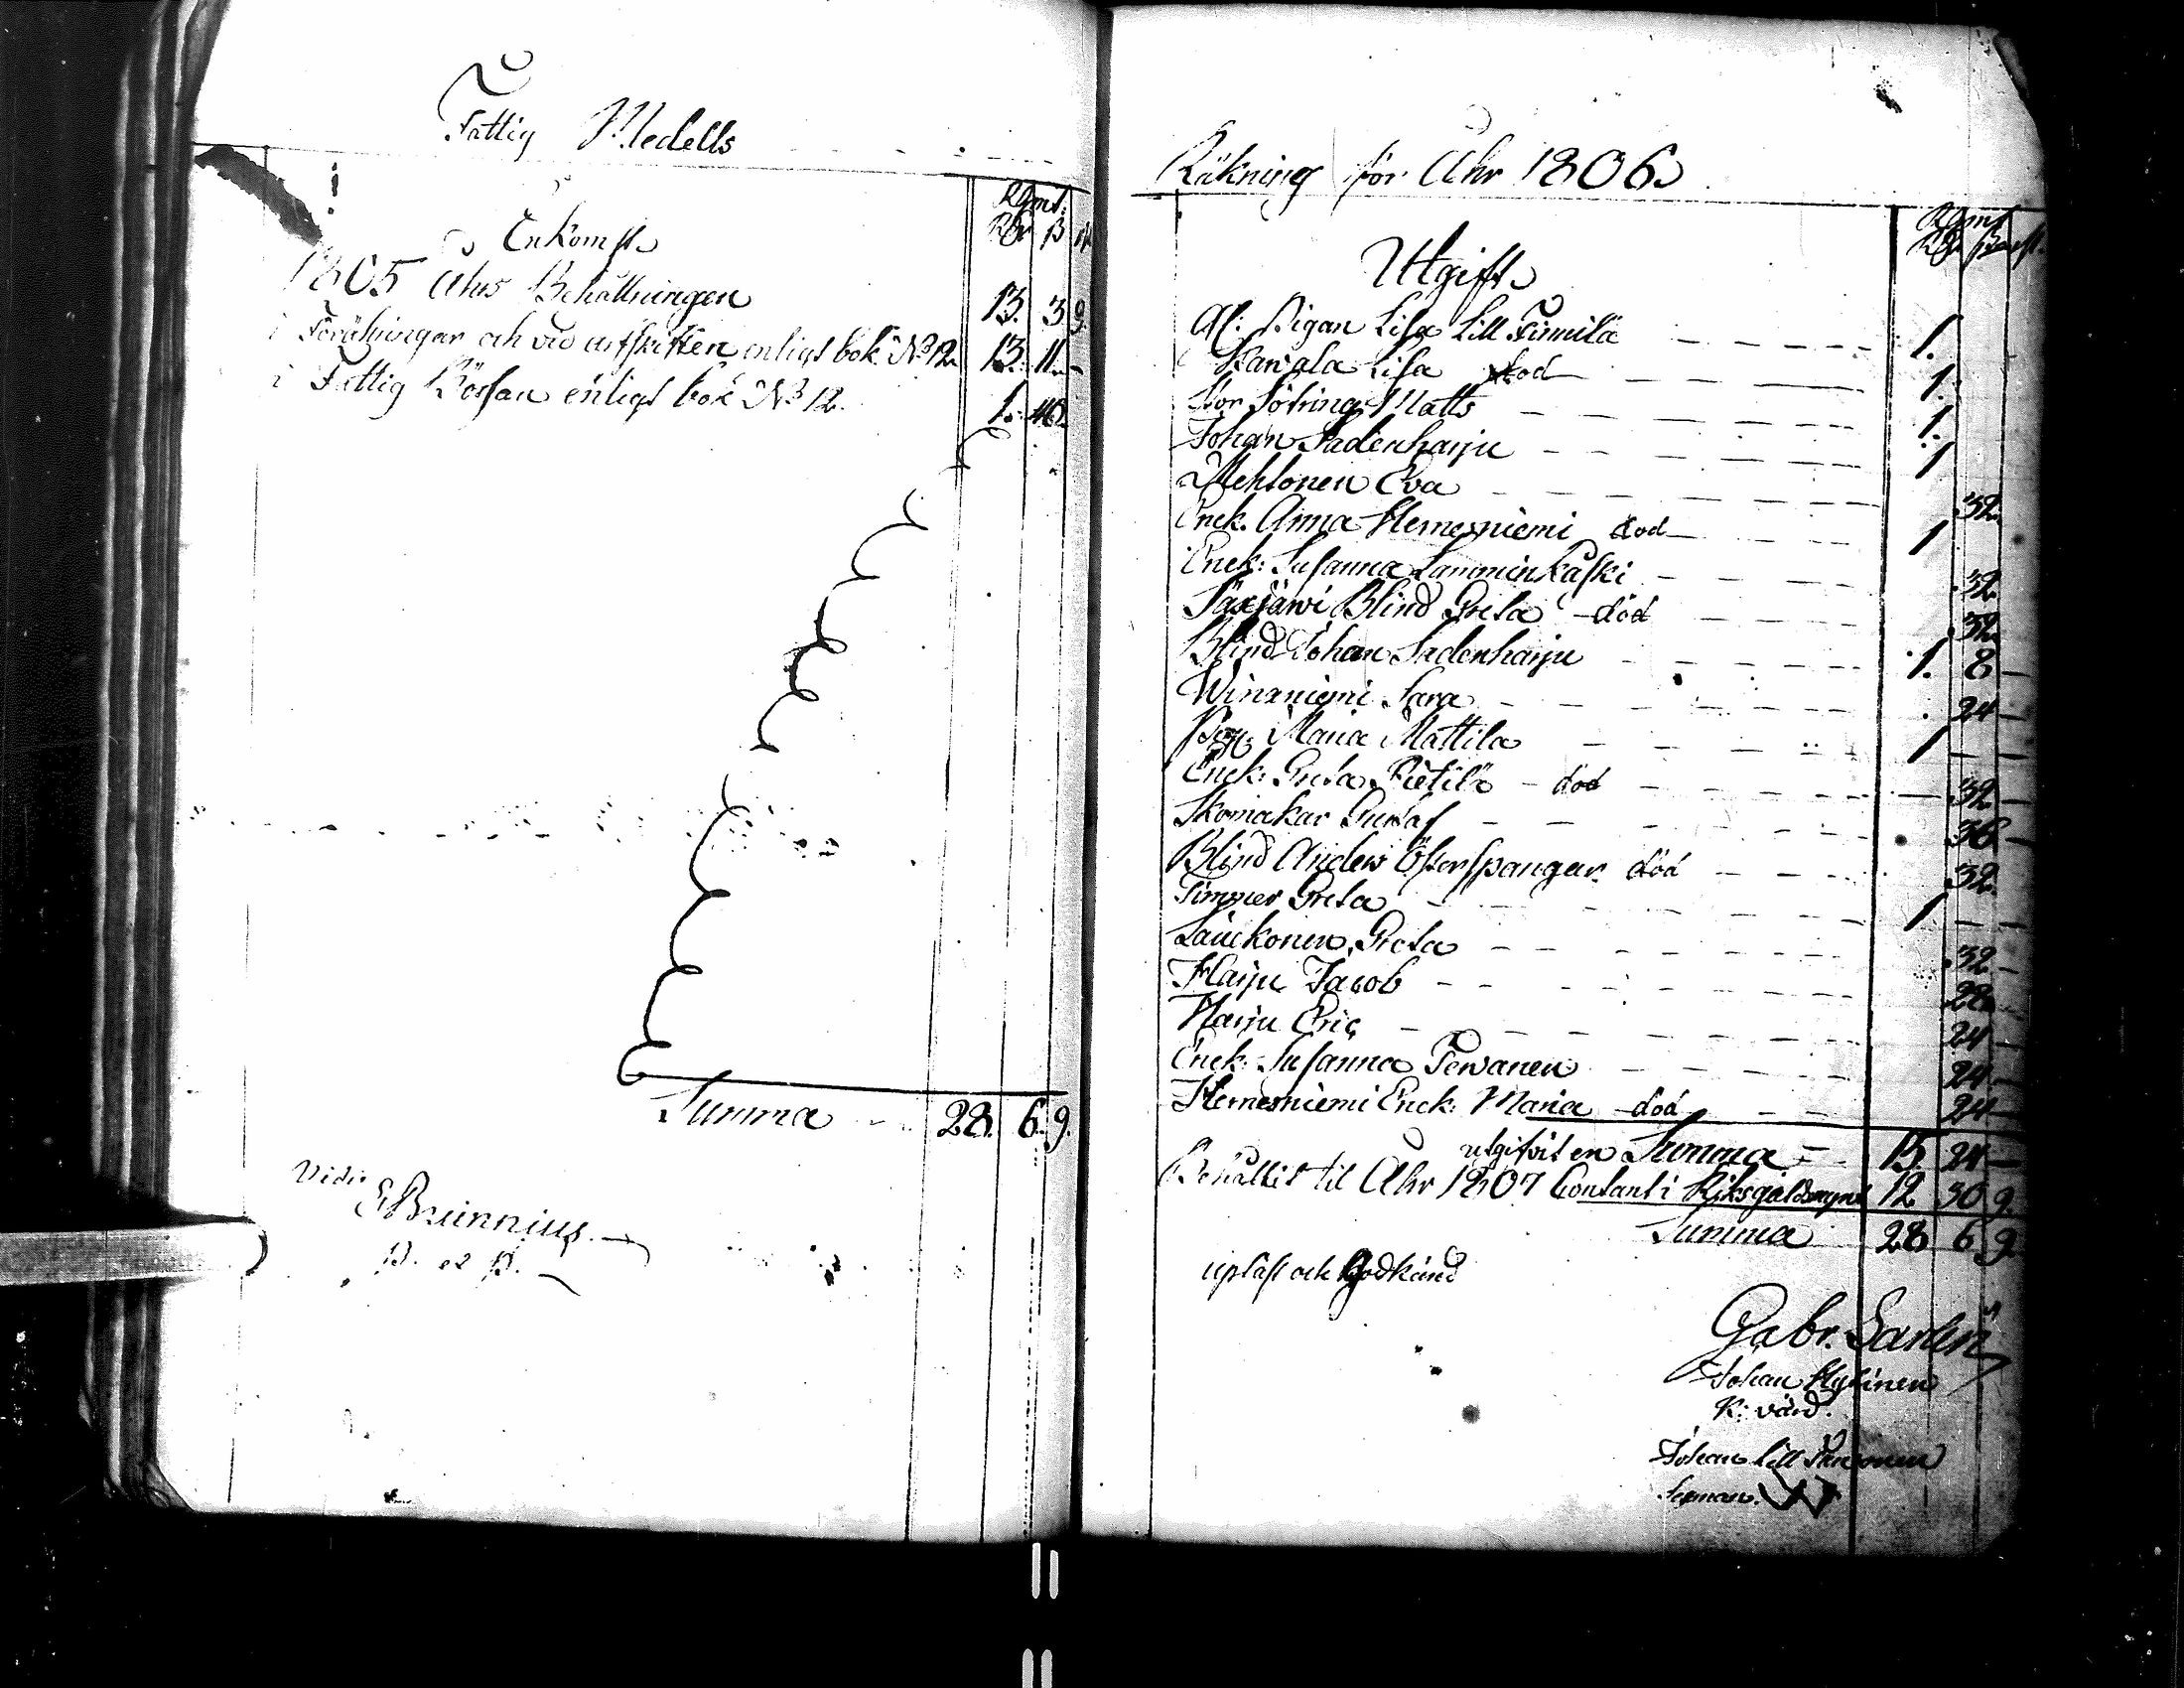 Fattig Medells
Rgmt:
Inkomst
Rdr ß
1805 Ahrs Behållningen 13. 3 9.
Föräringar och vid arfskiften enligt bok N:o 12. 13. 11. -
i Fattig Bössan enligt bok N:o 12. 1. 40.
Summa 28. 6. 9.
Vidi
E Brunnius.
P. et P.
Räkning för Ahr 1806
Rgmt
Utgift
Lisa Lill 1.
Karjala Lisa död 1.
Stor Matts 1.
Johan Sadenharju 1
Mehtonen Eva 32.
Enck. Anna Hernesniemi död 1
Enck: Susanna Lamminkaski 32.
Sääxjärvi Blind Greta död 32
Blind Johan Sadenharju 1. 8 -
Winaniemi Sara 24 -
Maria Mattila 1 - -
Enck: Greta Pietilä - död 32 -
Skomakar Gustaf 36 -
Blind Anders Österspangar död 32.
Timmer Greta 1 - -
Greta 32 -
Harju Jacob 28
Harju Eric 24 -
Enck: Susanna Tervanen 24 -
Hernesniemi Enck: Maria död 24 -
utgifvit en Summa 15. 24 -
Behållit til Ahr 1807 Contant i Riksgäldsmynt 12 30 9.
Summa 28 6 9
upläst och Godkänd
Gabr.
Johan
K: värd.
Johan Lill
Sexman.